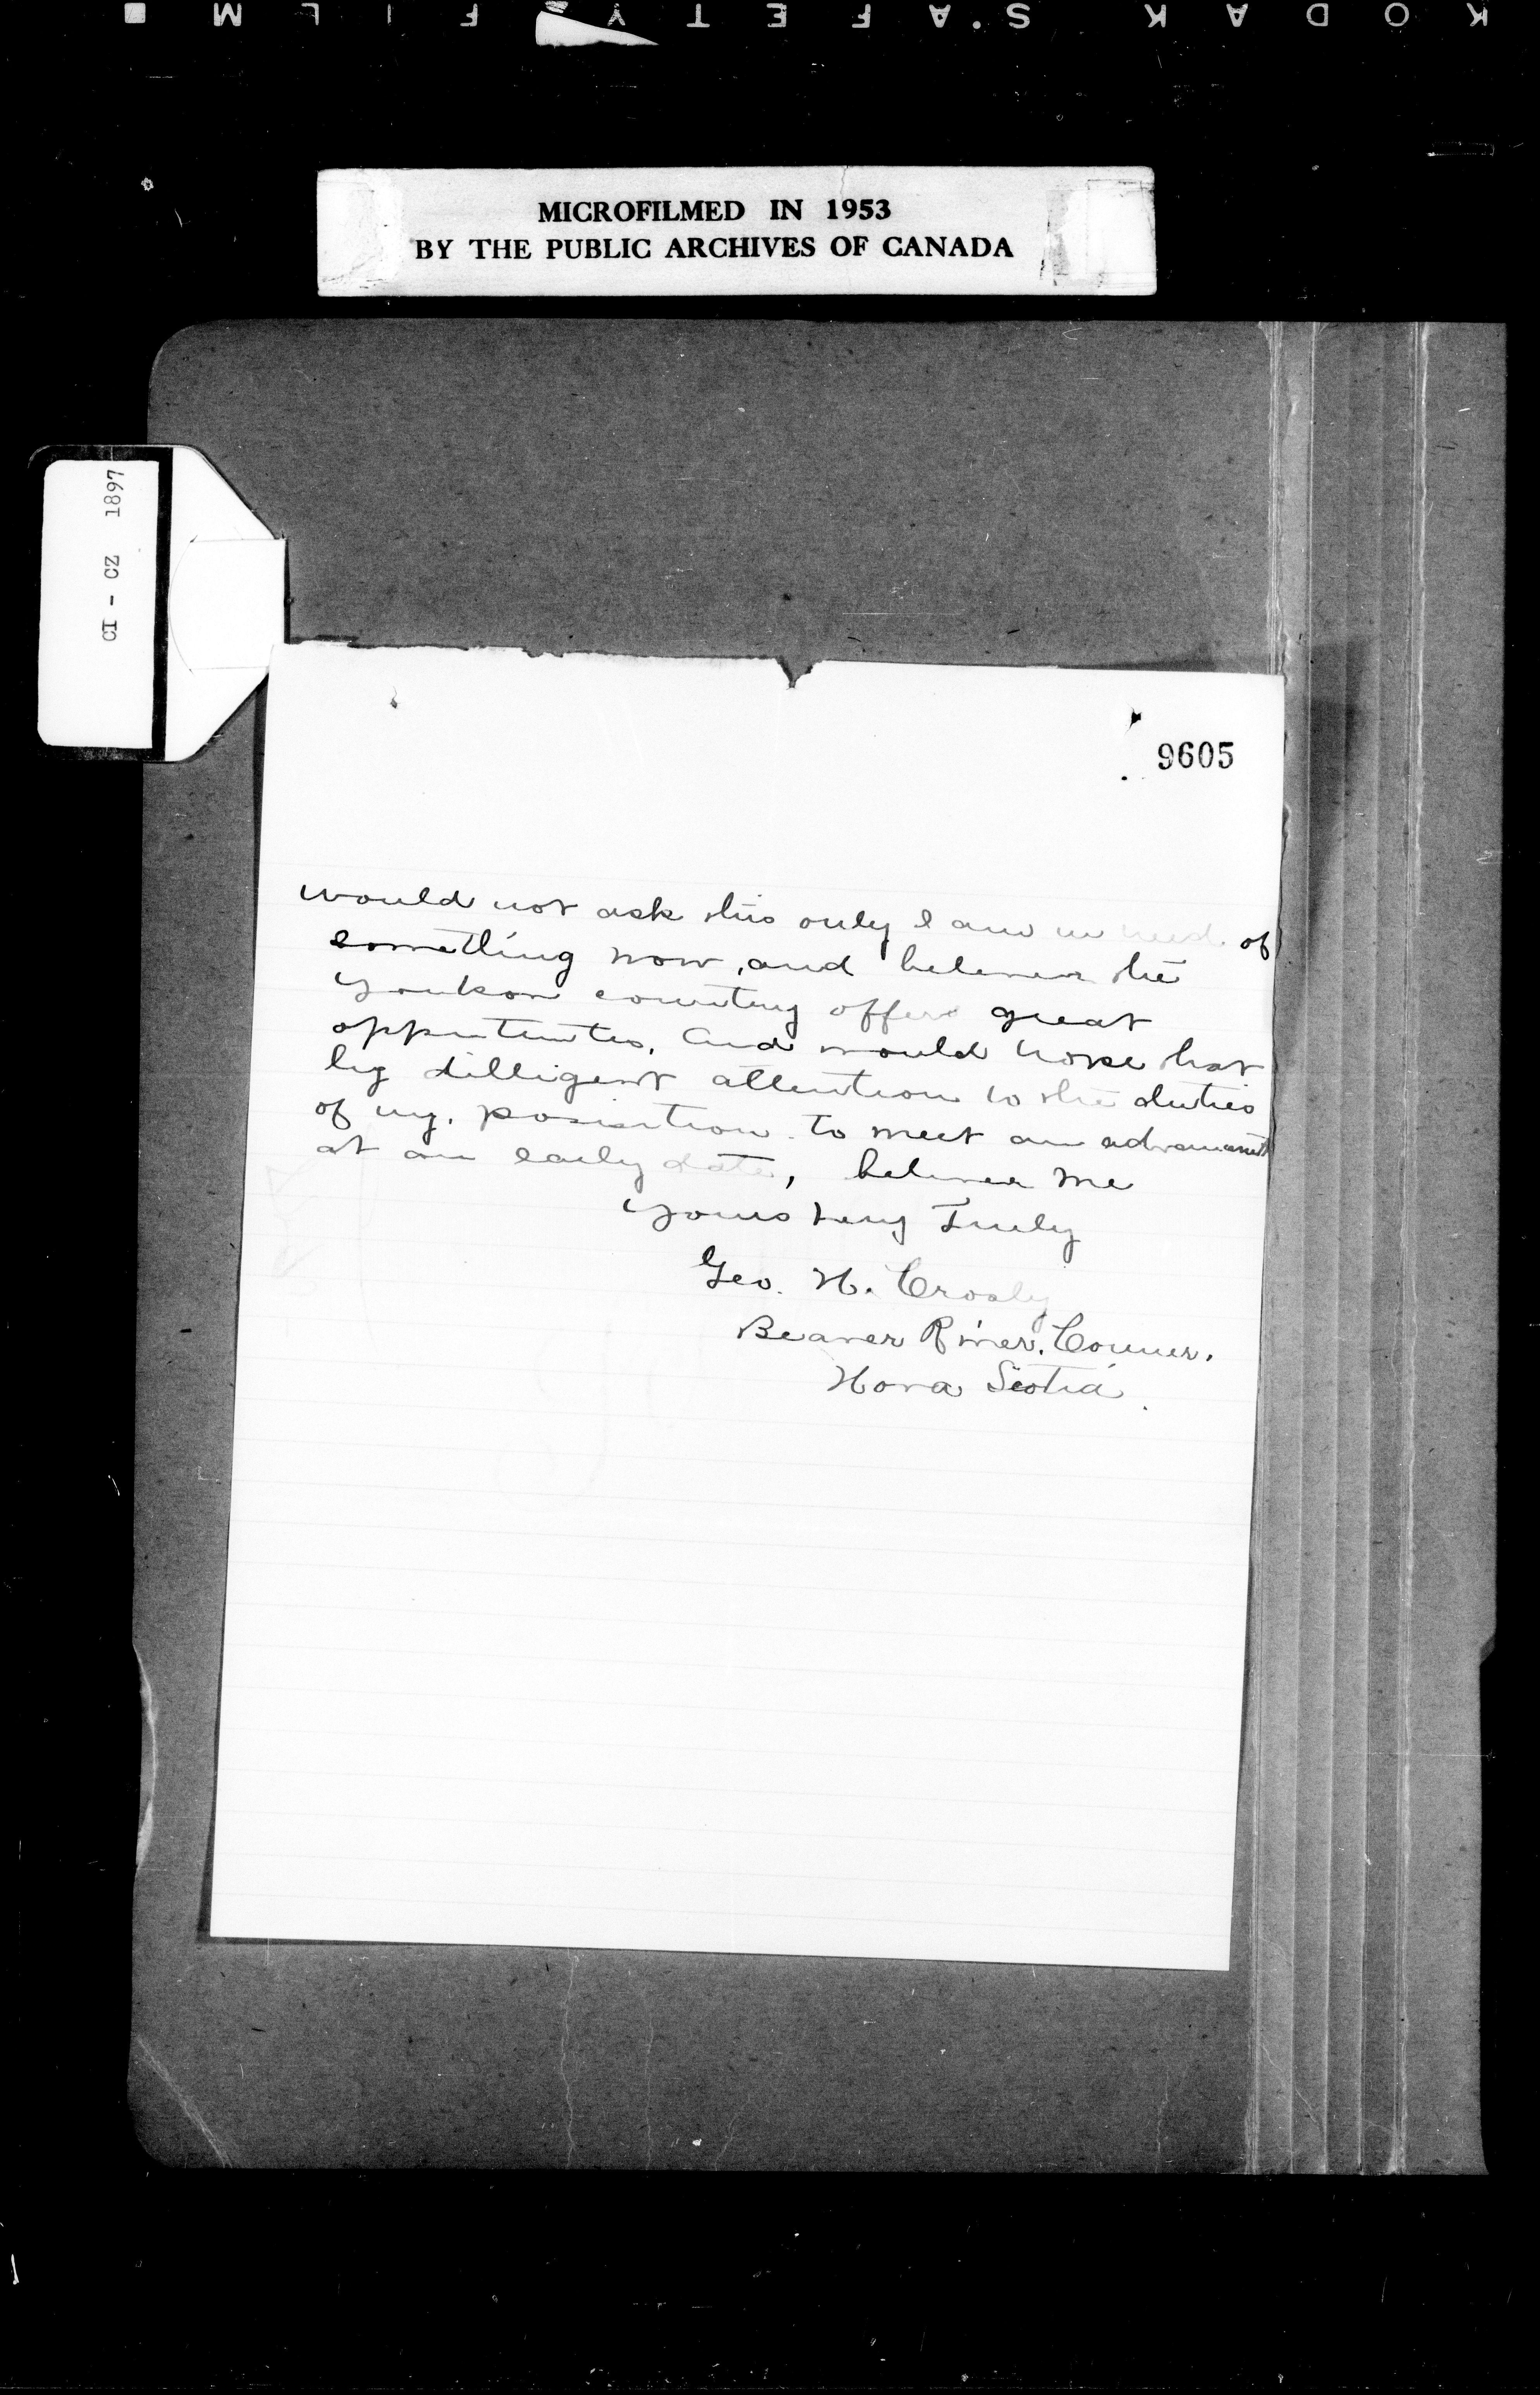 KODAK SAFETY FILM
MICROFILMED IN 1953
BY THE PUBLIC ARCHIVES OF CANADA
CI - CZ 1897
9605
would not ask this only I am in need of
something now, and believe the
Youkon country offers great
oppertunites. And would hope that
by dilligent attention to the duties
of my posisition to meet an advancment
at an early date, believe me
Yours Very Truly
Geo. H. Crosby
Beaver River. Corner.
Nova Scotia.